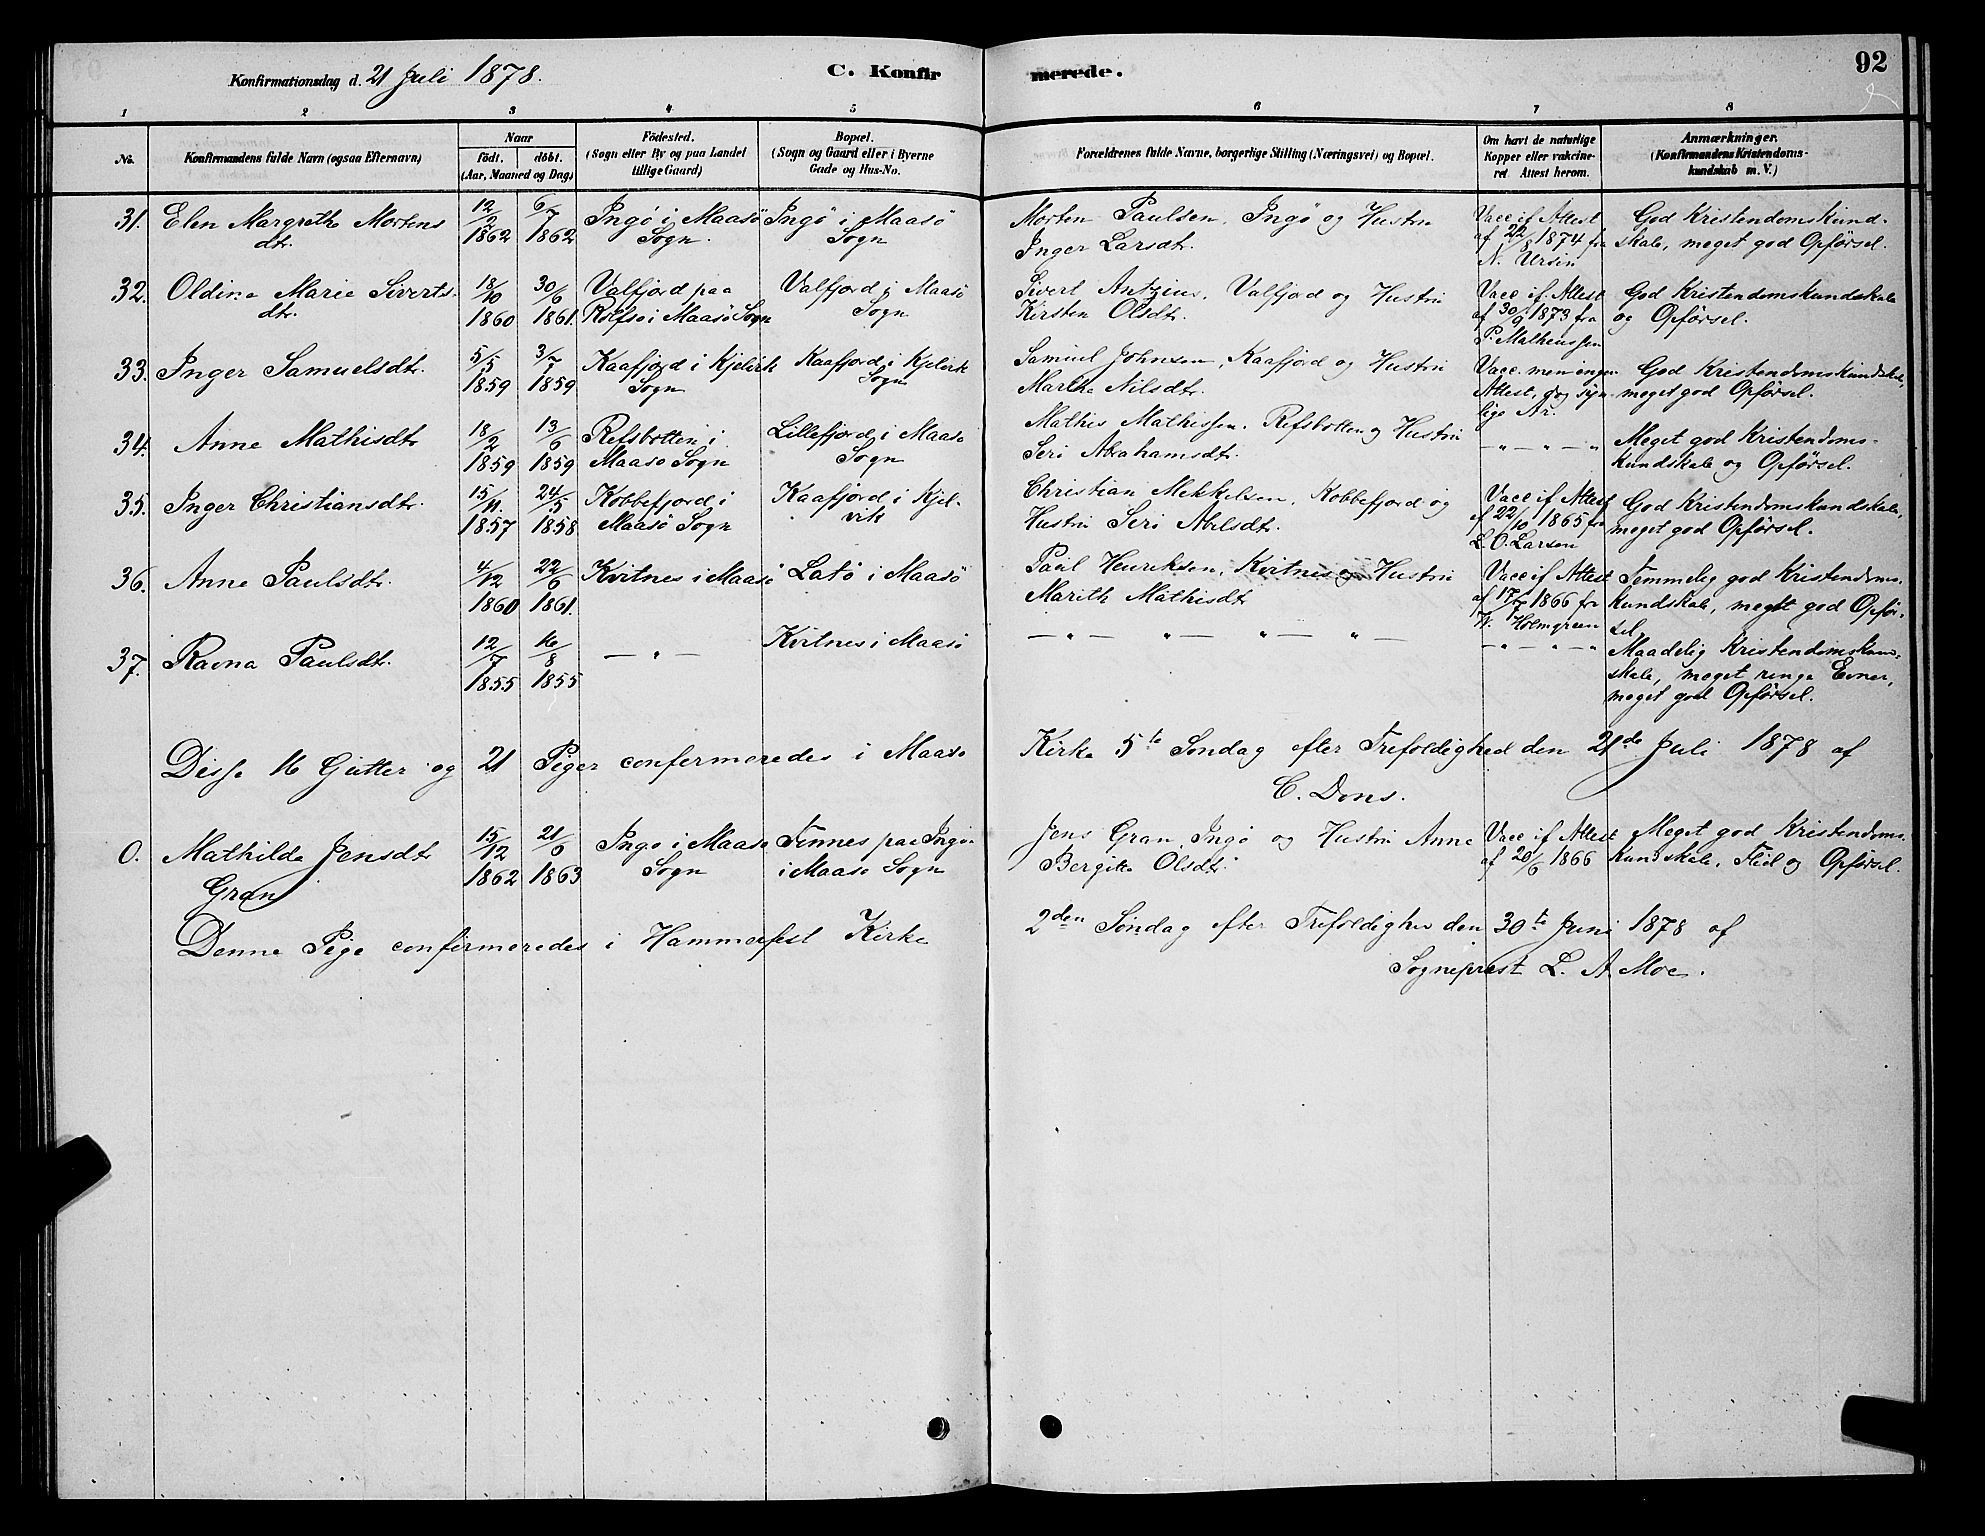 Konfirmationsdag d. 21 Juli 1878.
C. Konfirmerede.
92
1 2 3 4 5 6 7 8
No.
Konfirmandens fulde Navn (ogsaa Efternavn)
Naar
födt. döbt.
(Aar, Maaned og Dag)
Födested.
(Sogn eller By og paa Landet
tillige Gaard)
Bopæl.
(Sogn og Gaard eller i Byerne
Gade og Hus-No.
Forældrenes fulde Navne, borgerlige Stilling (Næringsvei) og Bopæl.
Om havt de naturlige
Kopper eller vakcine-
ret. Attest herom.
Anmærkninger.
(Konfirmandens Kristendoms-
kundskab m. V.)
31. Elen Margrethe Mortens
dtr.
12/2 1862
6/7 1862
Ingö i Maasö
Sogn.
Ingö i Maasö
Sogn
Morten Paulsen, Ingø og Hustru
Inger Larsdtr.
Vacc. if Attest
af 22/8 1874 fra
N. Ursin
God Kristendomskund-
skab, meget god Opførsel.
32. Oldine Marie Siverts-
dtr.
18/10 1860
30/6 1861.
Valfjord paa
Rolfsø i Maasö Sogn
Valfjord i Maasö
Sogn
Sivert Antzius, Valfjord og Hustru
Kirsten Olsdtr.
Vacc if Attest
af 30/9 1873 fra
P. Matheussen
God Kristendomskundskab
og Opførsel.
33. Inger Samuelsdtr.
5/5 1859
3/7 1859
Kaafjord i Kjelvik
Sogn
Kaafjord i Kjelvik
Sogn
Samuel Johnsen, Kaafjord og Hustru
Marthe Nilsdtr.
Vacc. men ingen
Attest, dog syn-
lige Ar.
God Kristendomskundskab,
meget god Opførsel.
34. Anne Mathisdtr
18/2 1859
13/6 1859
Refsbotten i
Maasø Sogn
Lillefjord i Maasø
Sogn
Mathis Mathissen, Refsbotten og Hustru
Seri Abrahamsdtr.
— " — " — "
Meget god Kristendoms-
kundskab og Opførsel.
35. Inger Christiansdtr.
15/11. 1857
24/5 1858
Kobbefjord i
Maasö Sogn
Kaafjord i Kjel-
vik
Christian Mekkelsen, Kobbefjord og
Hustru Seri Abelsdtr.
Vacc if Attest
af 22/10 1865 fra
L. O. Larsen
God Kristendomskundskab,
meget god Opførsel.
36. Anne Paulsdtr.
4/12 1860
22/6 1861.
Kvitnes i Maasö
Latö i Maasö
Paul Henriksen, Kvitnes og Hustru
Marith Mathisdtr
Vacc if Attest
af 17/7 1866 fra
W. Holmgreen
Temmelig god Kristendoms-
kundskab, meget god Opfør-
sel
37. Ravna Paulsdtr.
12/7 1855
16/8 1855
— " —
Kvitnes i Maasö
— " — " — " — " —
— " — " — "
Maadelig Kristendomskund-
skab, meget ringe Evner,
meget god Opførsel.
Disse 16 Gutter og 21 Piger confermeredes i Maasø Kirke 5te Søndag efter Trefoldighed den 21de Juli 1878 af
C. Dons.
0. Mathilde Jensdtr
Gran
15/12 1862
21/6 1863
Ingø i Maasø
Sogn
Finnes paa Ingø
i Maasø Sogn
Jens Gran, Ingø og Hustru Anne
Bergitte Olsdtr.
Vacc if Attest
af 20/6 1866
Meget god Kristendoms-
kundskab, Flid og Opførsel.
Denne Pige confirmeredes i Hammerfest Kirke 2den Søndag efter Trefoldighed den 30te Juni 1878 af
Sogneprest L. A. Moe.